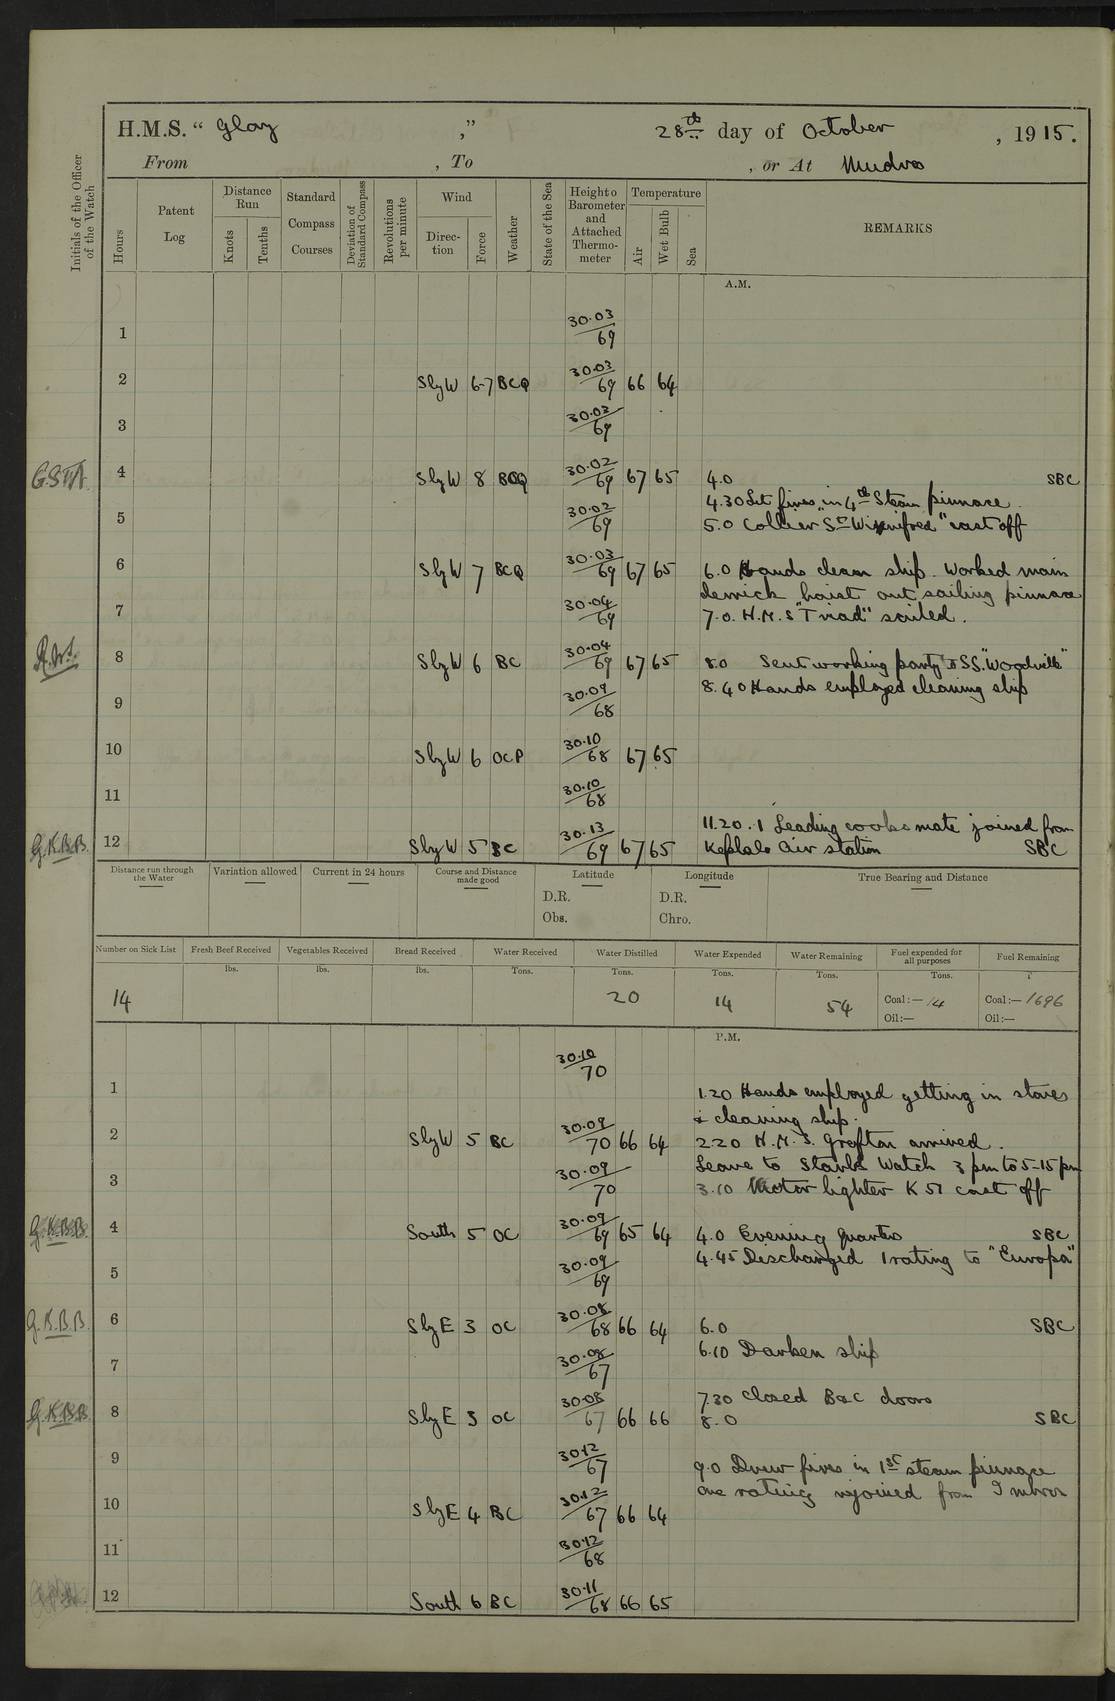 H.M.S. “ Glory ,” 28th day of October , 1915.
From , To , or At Mudros
Initials of the Officer of the Watch
Hours
Patent Log
Distance Run
Knots
Tenths
Standard Compass Courses
Deviation of Standard Compass
Revolutions per minute
Wind
Direction
Force
Weather
State of the Sea
Height of Barometer and Attached Thermometer
Temperature
Air
Wet Bulb
Sea
REMARKS
A.M.
1 30.03/69
2 SlyW 6-7 BCQ 30.03/69 66 64
3 30.02/69
4 SlyW 8 BCQ 30.02/69 67 65 4.0 SBC
4.30 Lit fires in 4th Steam pinnace.
5 30.02/69 5.0 Collier "Sn Winnifred" cast off
6 SlyW 7 BCQ 30.03/69 67 65 6.0 Hands clean ship. Worked main
derrick hoist out sailing pinnace
7 30.04/69 7.0. H.M.S "Triad" sailed.
8 SlyW 6 BC 30.04/69 67 65 8.0 Sent working party to SS."Woodville"
8.40 Hands employed cleaning ship
9 30.09/68
10 SlyW 6 OCP 30.10/68 67 65
11 30.10/68
11.20. 1 Leading cooks mate joined from
G.K.B.B. 12 SlyW 5 BC 30.13/69 67 65 Kephalo air station SBC
Distance run through the Water
Variation allowed
Current in 24 hours
Course and Distance made good
Latitude
D.R.
Obs.
Longitude
D.R.
Chro.
True Bearing and Distance
Number on Sick List
Fresh Beef Received
Vegetables Received
Bread Received
Water Received
Water Distilled
Water Expended
Water Remaining
Fuel expended for all purposes
Fuel Remaining
lbs. lbs. lbs. Tons. Tons. Tons. Tons. Tons. T
14 20 14 54 Coal:— 14 Coal:— 1696
Oil:— Oil:—
P.M.
30.10/70
1 1.20 Hands employed getting in stores
& cleaning ship.
2 SlyW 5 BC 30.09/70 66 64 2.20 H.M.S. Grafton arrived.
Leave to Starbd Watch 3 pm to 5-15 pm
3 30.09/70 3.10 Motor lighter K 51 cast off
G.K.B.B. 4 South 5 OC 30.09/69 65 64 4.0 Evening quarters SBC
4.45 Discharged 1 rating to "Europa"
5 30.09/69
G.K.B.B. 6 SlyE 3 OC 30.08/68 66 64 6.0 SBC
6.10 Darken ship
7 30.08/67
7.30 Closed B&C doors
G.K.B.B. 8 SlyE 3 OC 30.08/67 66 66 8.0 SBC
9 30.12/67 9.0 Drew fires in 1st steam pinnace
one rating rejoined from Imbros
10 SlyE 4 BC 30.12/67 66 64
11 30.12/68
12 South 6 BC 30.11/68 66 65